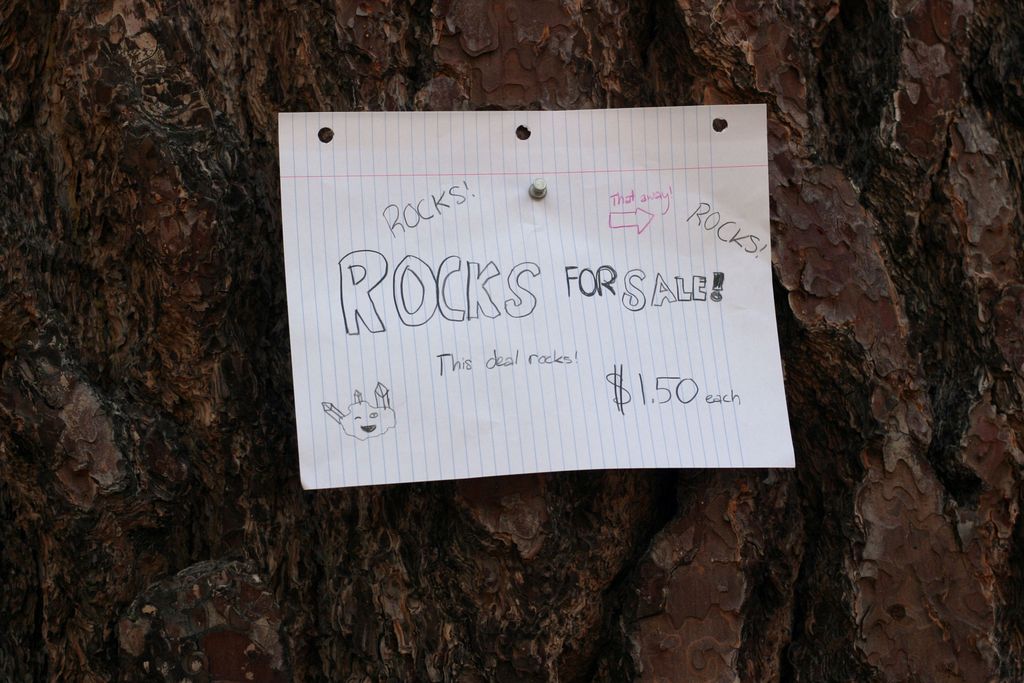 ROCKS!
That away!
ROCKS!
ROCKS FOR SALE!
This deal rocks!
$1.50 each